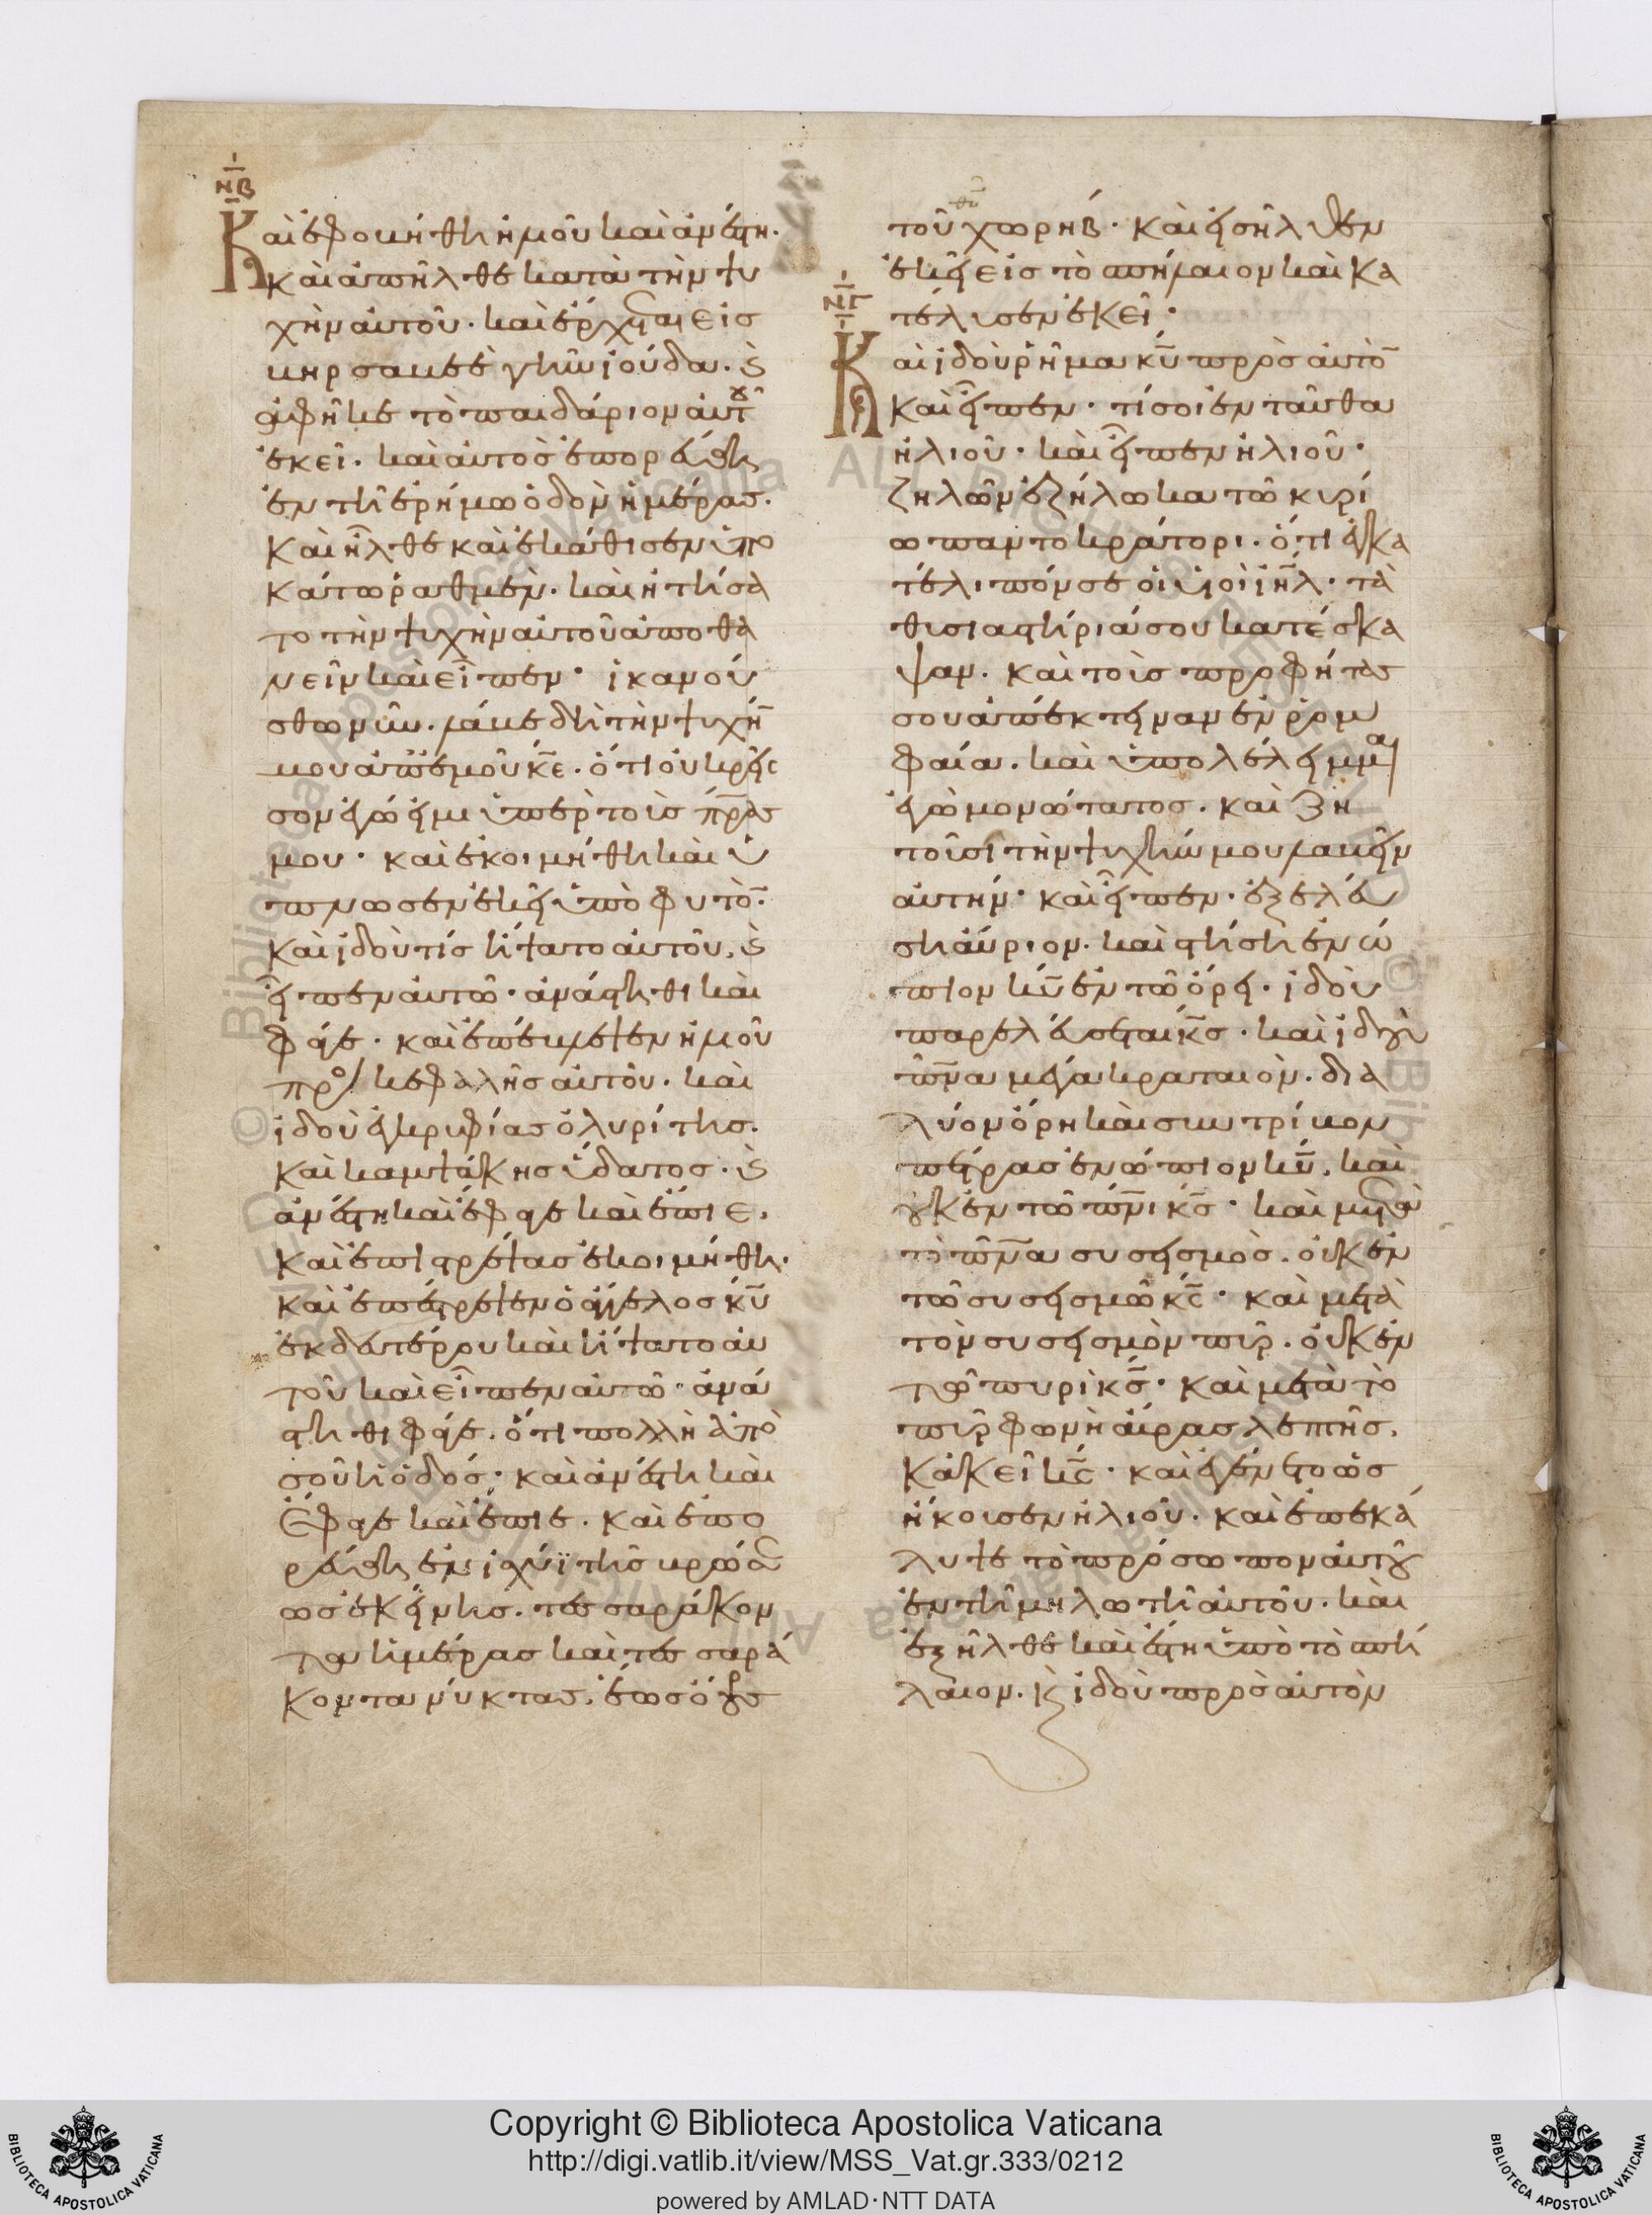 ΝΒ
Καὶ ἐφοβήθη ἠλιοῦ καὶ ἀνέστη.
καὶ ἀπῆλθε κατὰ τὴν ψυ
χὴν αὐτοῦ. καὶ ἔρχεται εἰς
βηρσαβεὲ γῆν ἰούδα. κ
ἀφῆκε τὸ παιδάριον αὐτοῦ
ἐκεῖ. καὶ αὐτὸς ἐπορεύθη
ἐν τῆ ἐρήμω ὁδὸν ἡμέρας.
καὶ ἦλθε καὶ ἐκάθισεν ὑπο
κάτω ῥαθμέν. καὶ ἠτήσα
το τὴν ψυχὴν αὐτοῦ ἀποθα
νεῖν καὶ εἶπεν· ἱκανού
σθω νῦν. λάβε δὴ τὴν ψυχήν
μου ἀπ' ἐμοῦ κε. ὅτι οὐ κρεῖσ
σον ἐγώ εἰμι ὑπὲρ τοὺς πρας
μου· καὶ ἐκοιμήθη καὶ ὕ
πνωσεν ἐκεῖ ὑπὸ φυτόν.
καὶ ἰδοὺ τίς ἥψατο αὐτοῦ, κ
εἶπεν αὐτῶ· ἀνάστηθι καὶ
φάγε. καὶ ἐπέβλεψεν ἠλιοῦ
πρὸς κεφαλῆς αὐτοῦ. καὶ
ἰδοὺ ἐγκρυφίας ὀλυρίτης.
καὶ καμψάκης ὕδατος. κ
ἀνέστη καὶ ἔφαγε καὶ ἔπιε.
καὶ ἐπιστρέψας ἐκοιμήθη.
καὶ ἐπέστρεψεν ὁ ἄγγελος κυ
ἐκ δευτέρου καὶ ἥψατο αὐ
τοῦ καὶ εἶπεν αὐτῶ· ἀνά
στηθι φάγε. ὅτι πολλὴ ἀπὸ
σοῦ ἡ ὁδός· καὶ ἀνέστη καὶ
ἔφαγε καὶ ἔπιε. καὶ ἐπο
ρεύθη ἐν ἰσχύϊ τῆς βρώσε
ως ἐκείνης. τεσσαράκον
τα ἡμέρας καὶ τεσσαρά
κοντα νύκτας. ἕως ὄρους
τοῦ χωρήβ. καὶ εἰσῆλθεν
ἐκεῖ εἰς τὸ σπήλαιον καὶ κα
τέλυσεν ἐκεῖ·
ΝΓ
Καὶ ἰδοὺ ῥῆμα κυ πρὸς αὐτὸν
καὶ εἶπεν· τί σοι ἐνταῦθα
ἠλιοῦ· καὶ εἶπεν ἠλιοῦ·
ζηλῶν ἐζήλωκα τῶ κυρί
ω παντοκράτορι. ὅτι ἐγκα
τέλιπόν σε οἱ υἱοὶ ιηλ. τὰ
θυσιαστήριά σου κατέσκα
ψαν. καὶ τοὺς προφήτας
σου ἀπέκτειναν ἐν ῥομ
φαία. καὶ ὑπολέλειμμαι
ἐγὼ μονώτατος. καὶ ζη
τοῦσι τὴν ψυχήν μου λαβεῖν
αὐτήν· καὶ εἶπεν. ἐξελεύ
ση αὔριον. καὶ στήση ἐνώ
πιον κυ ἐν τῶ ὄρει. ἰδοὺ
παρελεύσεται κς. καὶ ἰδοὺ
πνα μέγα κραταιόν. δια
λύον ὄρη καὶ συντρίβον
πέτρας ἐνώπιον κυ. καὶ
οὐκ ἐν τῶ πνι κς· καὶ μετὰ
τὸ πνα συσεισμός. οὐκ ἐν
τῶ συσεισμῶ κς· καὶ μετὰ
τὸν συσεισμὸν πῦρ. οὐκ ἐν
τῶ πυρὶ κς· καὶ μετὰ τὸ
πῦρ φωνὴ αὔρας λεπτῆς.
κἀκεῖ κς· καὶ ἐγένετο ὡς
ἤκουσεν ἠλιοῦ. καὶ ἐπεκά
λυψε τὸ πρόσωπον αὐτοῦ
ἐν τῆ μηλωτῆ αὐτοῦ. καὶ
ἐξῆλθε καὶ ἔστη ὑπὸ τὸ σπή
λαιον. κ ἰδοὺ πρὸς αὐτὸν
© Biblioteca Apostolica Vaticana ALL RIGHTS RESERVED
Copyright © Biblioteca Apostolica Vaticana
http://digi.vatlib.it/view/MSS_Vat.gr.333/0212
powered by AMLAD·NTT DATA
BIBLIOTECA APOSTOLICA VATICANA
BIBLIOTECA APOSTOLICA VATICANA